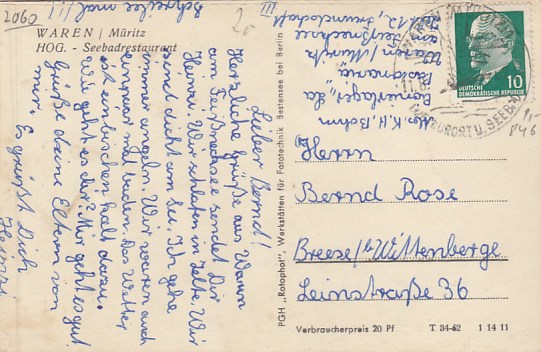 2060
WAREN / Müritz
HOG. - Seebadrestaurant
Schreibe mal!!!
Lieber Bernd!
Herzliche Grüße aus Waren
am Feißnecksee sendet Dir
Heinzi. Wir schlafen in Zelte. Wir
sind dicht am See. Ich gehe
immer angeln. Wir waren auch
einmal baden. Das Wetter
ist ein bischen kalt dazu.
Wie geht es dir? Mir geht es gut
Grüße deine Eltern von
mir.
Es grüßt Dich
Heinzi
PGH „Rotophot", Werkstätten für Fototechnik Bestensee bei Berlin
Abs. K.H. Böhm
Waren/Müritz
am Feißnecksee
Zelt 12, Freundschaft
III
DEUTSCHE
DEMOKRATISCHE REPUBLIK
10
WAREN
Herrn
Bernd Rose
Breese/b/Wittenberge
Leinstraße 36
Verbraucherpreis 20 Pf T 34-62 1 14 11
846